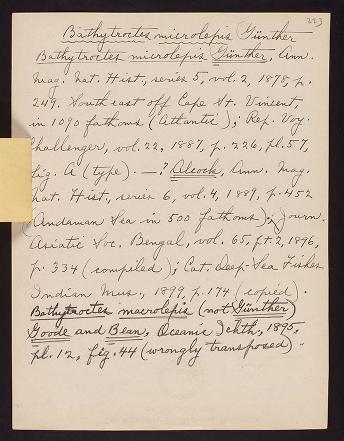 223
Bathytroctes microlepis Günther
Bathytroctes microlepis Günther, Ann.
Mag. Nat. Hist., series 5, vol. 2, 1878, p.
249. South east off Cape St. Vincent,
in 1090 fathoms (Atlantic); Rep. Voy.
Challenger, vol. 22, 1887, p. 226, pl. 57,
fig. A (type). —? Alcock, Ann. Mag.
Nat. Hist., series 6, vol. 4, 1889, p. 452
(Andaman Sea in 500 fathoms); Journ.
Asiatic Soc. Bengal, vol. 65, pt. 2, 1896,
p. 334 (compiled); Cat. Deep-Sea Fishes
Indian Mus., 1899, p. 174 (copied).
Bathytroctes macrolepis (not Günther)
Goode and Bean, Oceanic Ichth., 1895,
pl. 12, fig. 44 (wrongly transposed).